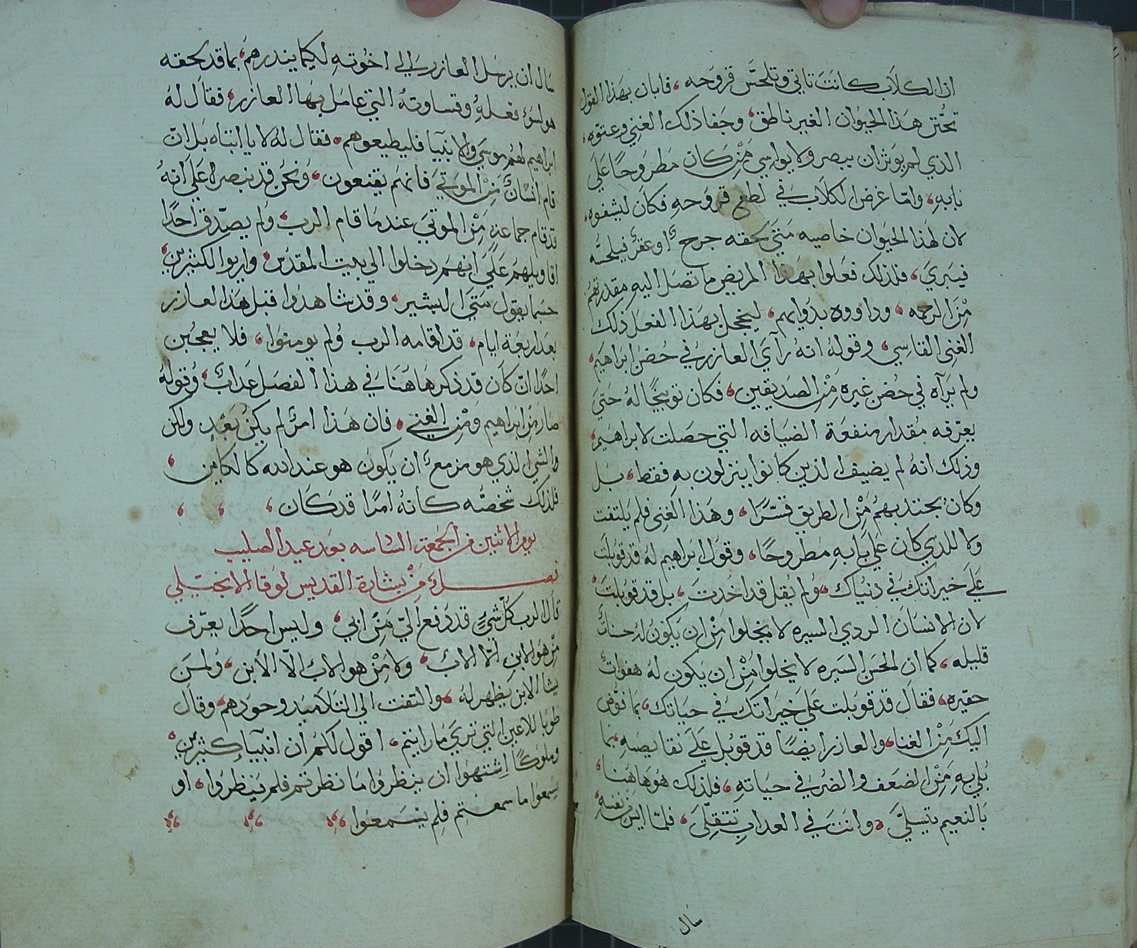 اذ الكلاب كانت تاتي وتلحس قروحه، فابان بهذا القول
تحنن هذا الحيوان الغير ناطق، وجفا ذلك الغني وعتوه،
الذي لم يوثر ان يبصر ولا يواسي من كان مطروحًا علي
بابه، وانما غرض الكلاب في لطع قروحه فكان لشفوه،
لان لهذا الحيوان خاصيه متي لحقه جرح او عقر فيلحسه
فيبري، فلذلك فعلوا بهذا المريض ما تصل اليه مقدرتهم
من الرحمه، وداووه بدوايهم، ليخجل بهذا الفعل ذلك
الغني القاسي، وقوله انه راي العازر في حضن ابراهيم،
ولم يراه في حضن غيره من الصديقين، فكان توبيخًا له حتي
يعرفه مقدار منفعة الضيافه التي حصلت لابراهيم،
وذلك انه لم يضيف الذين كانوا ينزلون به فقط، بل
وكان يجتذبهم من الطريق قسرًا، وهذا الغني فلم يلتفت
ولا للذي كان علي بابه مطروحًا، وقول ابراهيم له قد قوبلت
علي خيراتك في دنياك، ولم يقل قد اخذت، بل قد قوبلت،
لان الانسان الردي السيره لا يخلوا من ان يكون له حسنات
قليله، كما ان المحسن السيره لا يخلوا من ان يكون له هفوات
حقيره، فقال قد قوبلت علي خيراتك في حياتك، بما فوض
اليك من الغنا، والعازر ايضًا قد قوبل علي نقايصه، بما
بُلي به من الضعف والضر في حياته، فلذلك هو هاهنا،
بالنعيم يتسلي، وانت في العذاب تتقلي، فلما ايس من نفسه،
سال
سال ان يرسل العازر الي اخوته لكيما ينذرهم، بما قد لحقه
هو لسو فعله وقساوته التي عامل بها العازر، فقال له
ابراهيم لهم موسي والانبيا فليطيعوهم، فقال له لا يا ابتاه بل ان
قام انسان من الموتي فانهم يقنعون، ونحن قد نبصر اعلي انه
قد قام جماعه من الموتي عندما قام الرب، ولم يصدق احدًا
اقاويلهم علي انهم دخلوا الي بيت المقدس، واريوا لكثيرين،
حسبما يقول متي البشير، وقد شاهدوا قبل هذا العازر
بعد اربعة ايام، قد اقامه الرب ولم يومنوا، فلا يعجبن
احدًا ان كان قد ذكر هاهنا في هذا الفصل عذاب، وقوله
صار من ابراهيم ومن الغني، فان هذا امر لم يكن بعد، ولكن
والشي الذي هو مزمع ان يكون هو عند الله كالكاين،
فلذلك شخصه كانه امرًا قد كان،
يوم الاثنين من الجمعة السادسه بعد عيد الصليب
فصل من بشارة القديس لوقا الانجيلي
قال الرب كل شي قد دفع الي من ابي، وليس احدًا يعرف
من هو الابن الا الاب، ولا من هو الاب الا الابن، ولمن
يشا الابن يظهر له، والتفت الي التلاميذ وحودهم، وقال
طوبا للاعين التي تري ما رايتم، اقول لكم ان انبيا كثيرين
وملوكًا اشتهوا ان ينظروا ما نظرتم فلم ينظروا، او
يسمعوا ما سمعتم فلم يسمعوا،